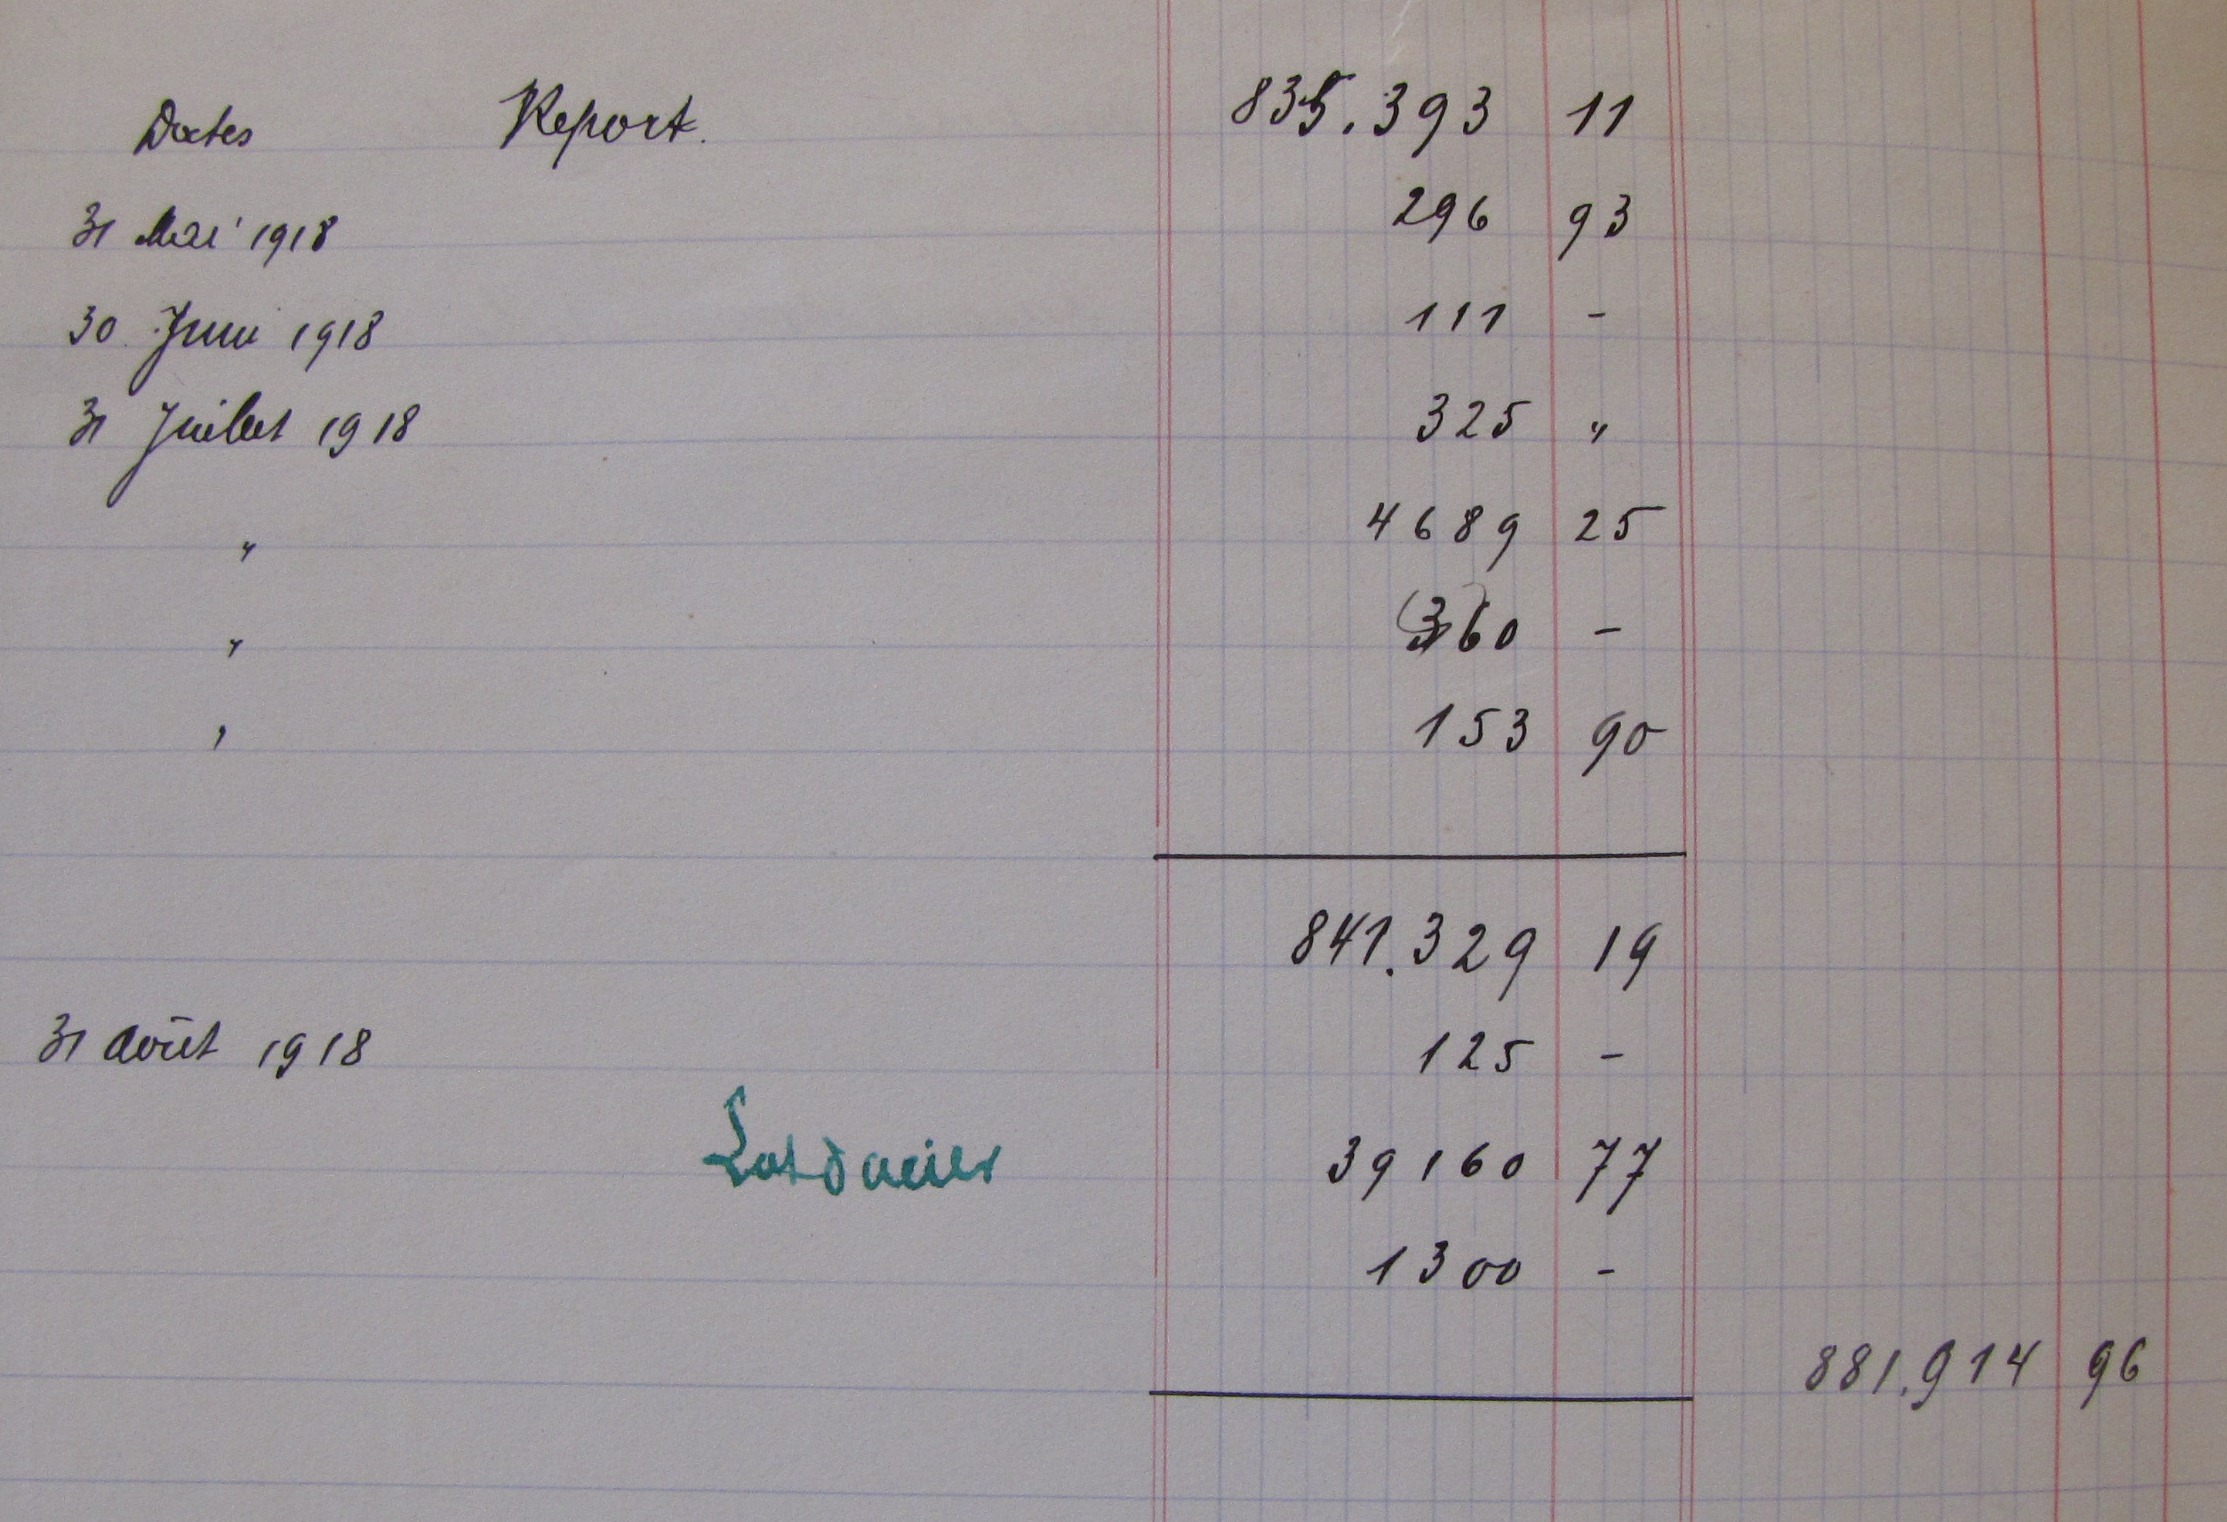 Dates Report. 835.393 11
31 Mai 1918 296 93
30 Juin 1918 111 -
31 Juillet 1918 325 "
" 4689 25
" 360 -
" 153 90
841.329 19
31 Août 1918 125 -
Lot d acier 39160 77
1300 -
881.914 96